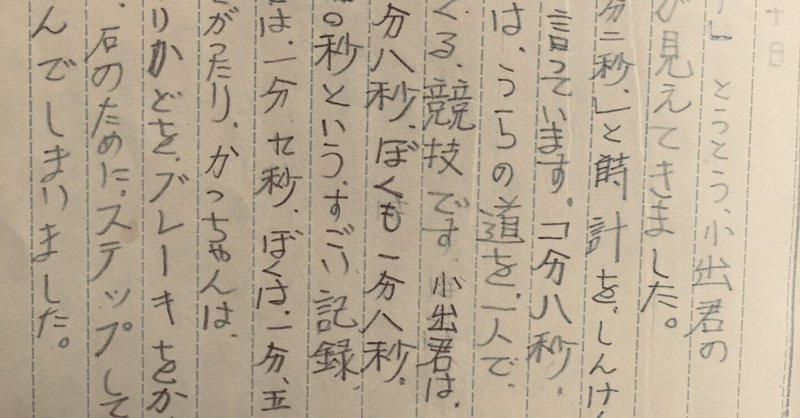 」とうとう、小出君の
が見えてきました。
分二秒、」と時計を、しんけ
言っています。コ分八秒、
は、うらの道を、一人で、
くる、競技です。小出君は、
分八秒、ぼくも一分八秒。
秒という、すごい記録、
は、一分七秒、ぼくは、一分、五
がったり、かっちゃんは、
りかどを、ブレーキをか
、石のために、ステップして
んでしまいました。